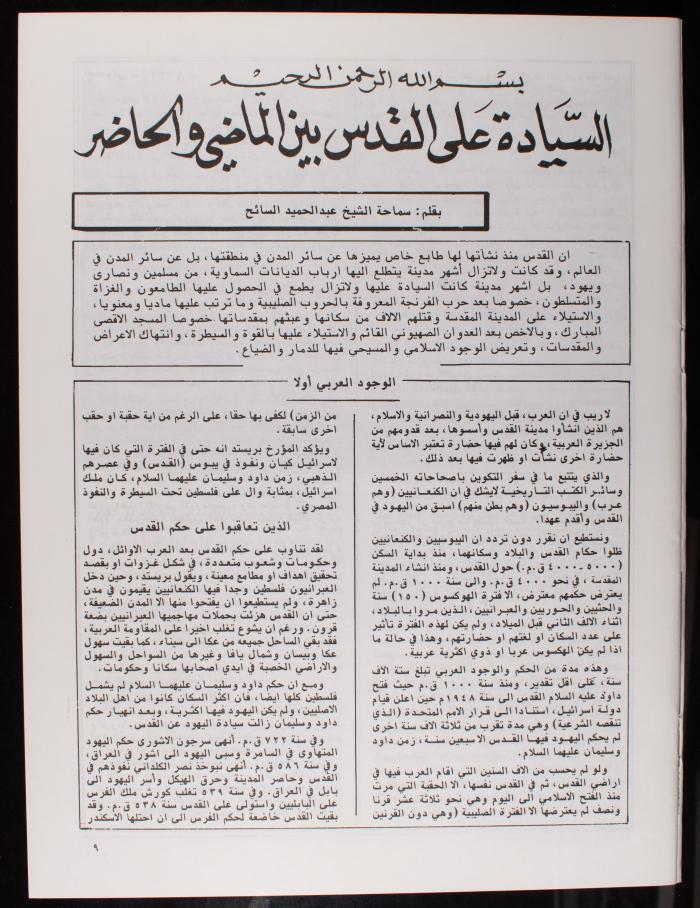 بسم الله الرحمن الرحيم
السيادة على القدس بين الماضي والحاضر
بقلم: سماحة الشيخ عبدالحميد السائح
ان القدس منذ نشأتها لها طابع خاص يميزها عن سائر المدن في منطقتها، بل عن سائر المدن في
العالم، وقد كانت ولاتزال أشهر مدينة يتطلع اليها ارباب الديانات السماوية، من مسلمين ونصارى
ويهود، بل اشهر مدينة كانت السيادة عليها ولاتزال يطمع في الحصول عليها الطامعون والغزاة
والمتسلطون، خصوصا بعد حرب الفرنجة المعروفة بالحروب الصليبية وما ترتب عليها ماديا ومعنويا،
والاستيلاء على المدينة المقدسة وقتلهم الالاف من سكانها وعبثهم بمقدساتها خصوصا المسجد الاقصى
المبارك، وبالاخص بعد العدوان الصهيوني القائم والاستيلاء عليها بالقوة والسيطرة، وانتهاك الاعراض
والمقدسات، وتعريض الوجود الاسلامي والمسيحي فيها للدمار والضياع.
الوجود العربي أولا
لاريب في ان العرب، قبل اليهودية والنصرانية والاسلام،
هم الذين انشأوا مدينة القدس وأسسوها، بعد قدومهم من
الجزيرة العربية، وكان لهم فيها حضارة تعتبر الاساس لأية
حضارة اخرى نشأت او ظهرت فيها بعد ذلك.
والذي يتتبع ما في سفر التكوين باصحاحاته الخمسين
وسائر الكتب التاريخية لايشك في ان الكنعانيين (وهم
عرب) واليبوسيون (وهم بطن منهم) اسبق من اليهود في
القدس وأقدم عهدا.
ونستطيع ان نقرر دون تردد ان اليبوسيين والكنعانيين
ظلوا حكام القدس والبلاد وسكانهما، منذ بداية السكن
(٥٠٠٠ - ٤٠٠٠ ق.م.) حول القدس، ومنذ انشاء المدينة
المقدسة، في نحو ٤٠٠٠ ق.م. والى سنة ١٠٠٠ ق.م. لم
يعترض حكمهم معترض، الا فترة الهكوس (١٥٠) سنة
والحثيين والحوريين والعبرانيين، الذين مروا بالبلاد،
اثناء الالف الثاني قبل الميلاد، ولم يكن لهذه الفترة تأثير
على عدد السكان او لغتهم او حضارتهم، وهذا في حالة ما
اذا لم يكن الهكسوس عربا او ذوي اكثرية عربية.
وهذه مدة من الحكم والوجود العربي تبلغ ستة الاف
سنة، على اقل تقدير، ومنذ سنة ١٠٠٠ ق.م حيث فتح
داود عليه السلام القدس الى سنة ١٩٤٨م حين اعلن قيام
دولة اسرائيل، استنادا الى قرار الامم المتحدة (الذي
تنقصه الشرعية) وهي مدة تقرب من ثلاثة الاف سنة اخرى
لم يحكم اليهود فيها القدس الا سبعين سنة، زمن داود
وسليمان عليهما السلام.
ولو لم يحسب من الاف السنين التي اقام العرب فيها في
اراضي القدس، ثم في القدس نفسها، الا الحقبة التي مرت
منذ الفتح الاسلامي الى اليوم وهي نحو ثلاثة عشر قرنا
ونصف لم يعترضها الا الفترة الصليبية (وهي دون القرنين
من الزمن) لكفى بها حقا، على الرغم من اية حقبة او حقب
اخرى سابقة.
ويؤكد المؤرخ بريستد انه حتى في الفترة التي كان فيها
لاسرائيل كيان ونفوذ في يبوس (القدس) وفي عصرهم
الذهبي، زمن داود وسليمان عليهما السلام، كان ملك
اسرائيل، بمثابة وال على فلسطين تحت السيطرة والنفوذ
المصري.
الذين تعاقبوا على حكم القدس
لقد تناوب على حكم القدس بعد العرب الاوائل، دول
وحكومات وشعوب متعددة، في شكل غزوات او بقصد
تحقيق اهداف او مطامع معينة، ويقول بريستد، وحين دخل
العبرانيون فلسطين وجدا فيها الكنعانيين يقيمون في مدن
زاهرة، ولم يستطيعوا ان يفتحوا منها الا المدن الضعيفة،
حتى ان القدس هزئت بحملات مهاجميها العبرانيين بضعة
قرون. ورغم ان يشوع تغلب اخيرا على المقاومة العربية،
فقد بقي الساحل جميعه من عكا الى سيناء، كما بقيت سهول
عكا وبيسان وشمال يافا وغيرها من السواحل والسهول
والاراضي الخصبة في ايدي اصحابها سكانا وحكومات.
ومع ان حكم داود وسليمان عليهما السلام لم يشمل
فلسطين كلها ايضا، فان اكثر السكان كانوا من اهل البلاد
الاصليين، ولم يكن اليهود فيها اكثرية، وبعد انهيار حكم
داود وسليمان زالت سيادة اليهود عن القدس.
وفي سنة ٧٢٢ ق.م. أنهى سرجون الاشوري حكم اليهود
المتهاوي في السامرة وسبى اليهود الى اشور في العراق،
وفي سنة ٥٨٦ ق.م. أنهى نبوخذ نصر الكلداني نفوذهم في
القدس وحاصر المدينة وحرق الهيكل وأسر اليهود الى
بابل في العراق. وفي سنة ٥٣٩ تغلب كورش ملك الفرس
على البابليين واستولى على القدس سنة ٥٣٨ ق.م. وقد
بقيت القدس خاضعة لحكم الفرس الى ان احتلها الاسكندر
٩